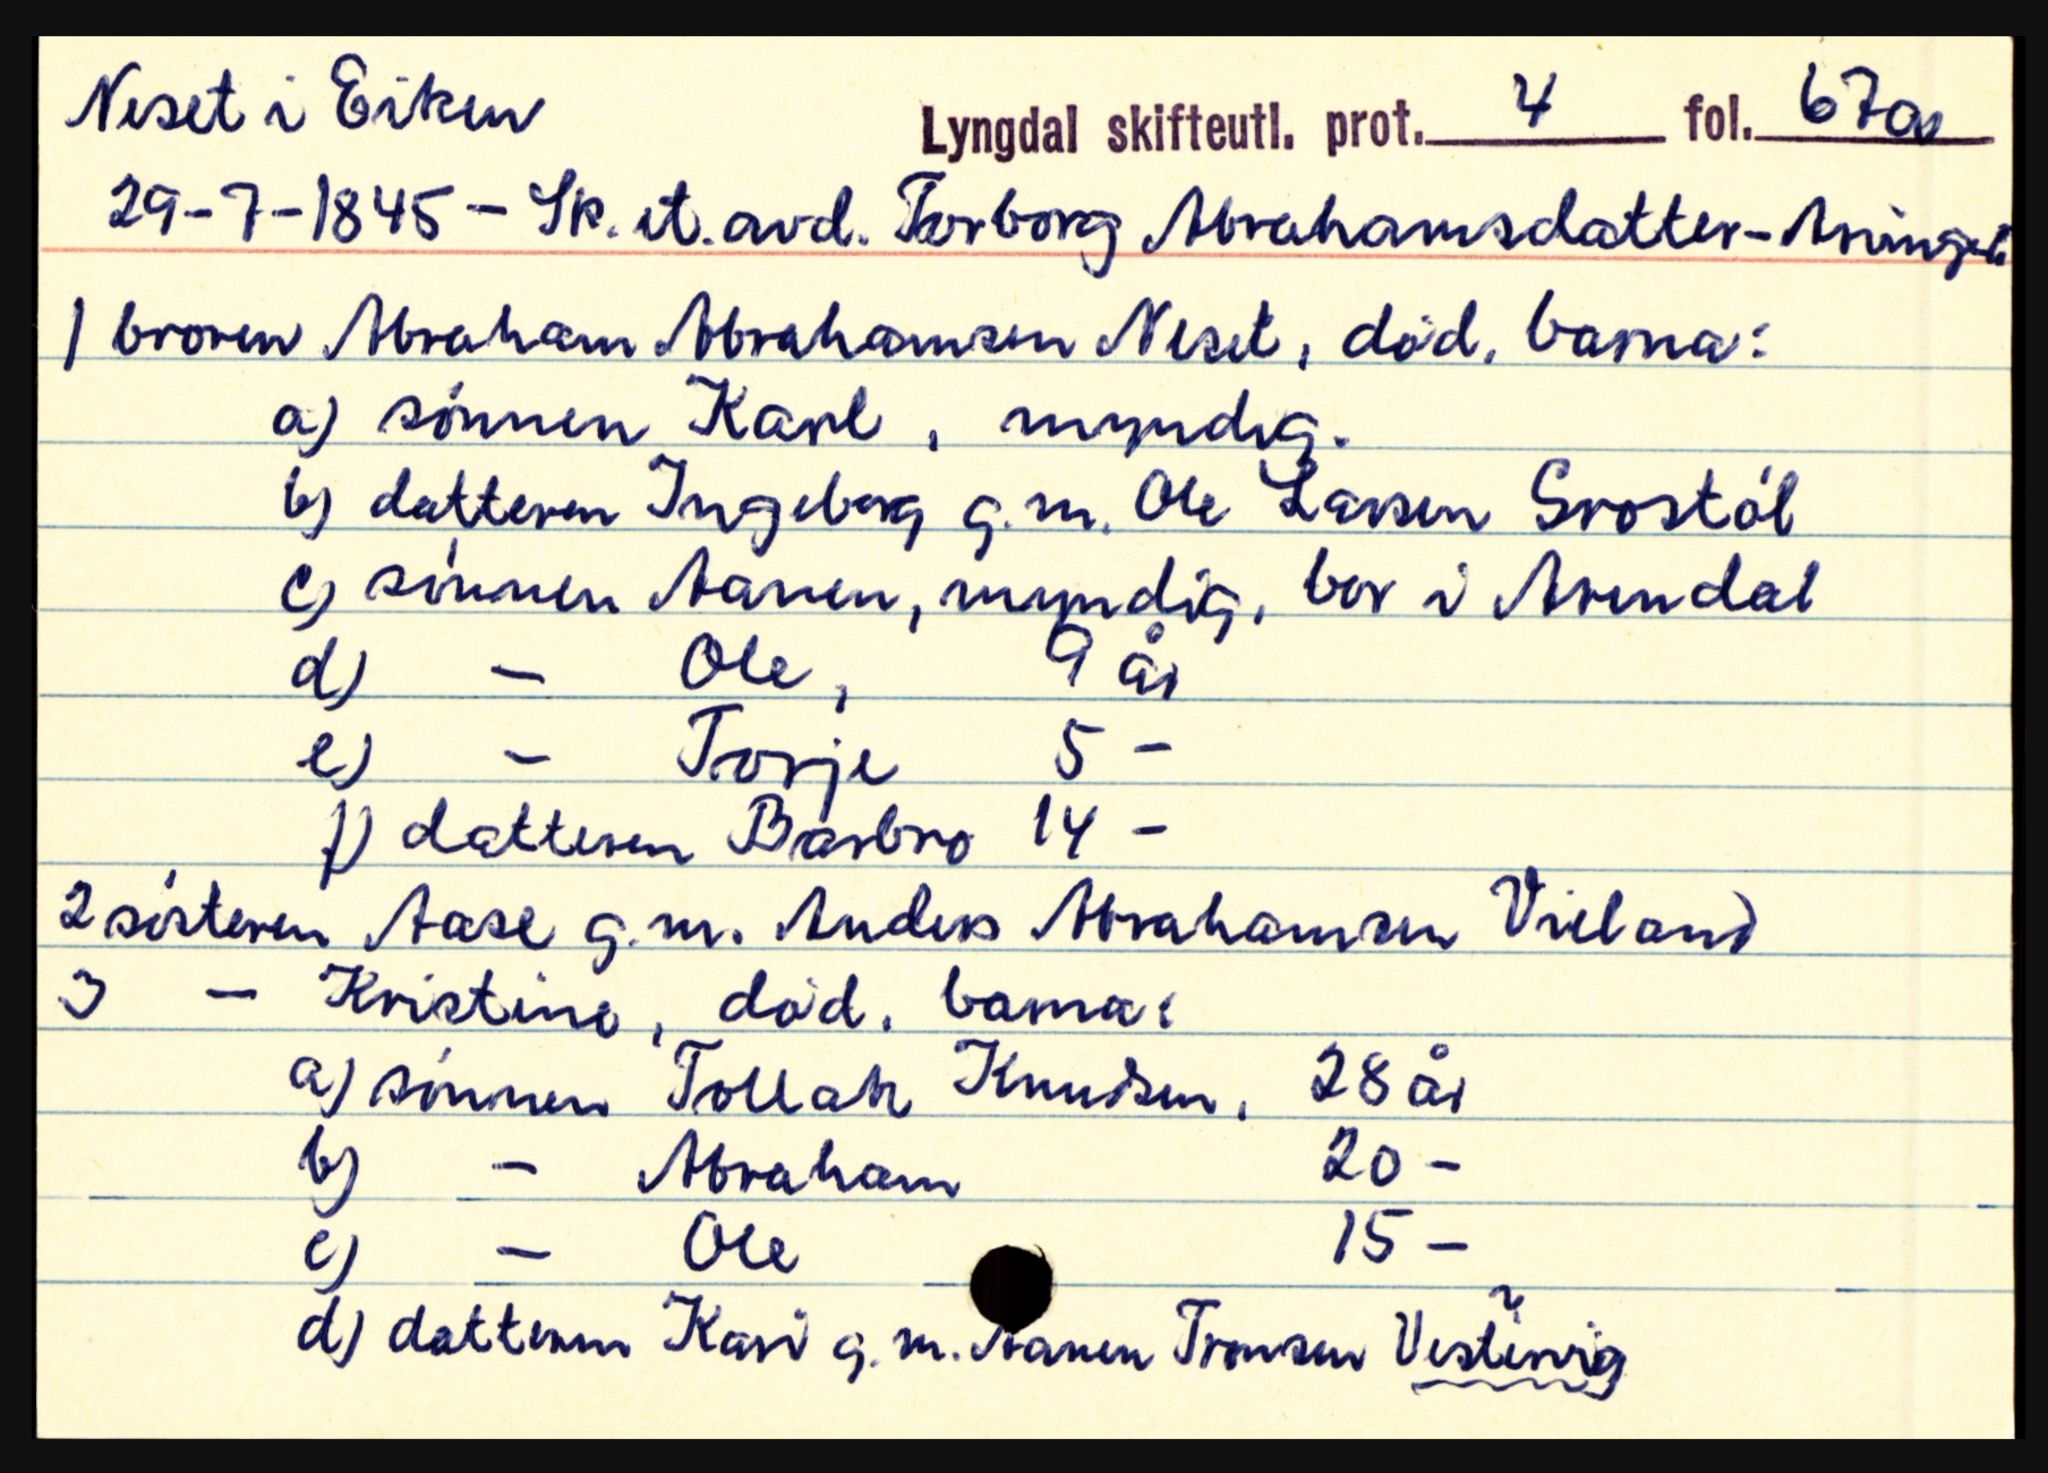 Neset i Eiken
Lyngdal skifteutl. prot. 4 fol. 67a
29-7-1845 - Sk. et. avd. Torborg Abrahamsdatter - Arvinger:
1 broren Abraham Abrahamsen Neset, död, barna:
a) sönnen Karl, myndig.
b) datteren Ingeborg g.m. Ole Larsen Grostöl
c) sönnen Aanen, myndig, bor i Arendal
d) - Ole, 9 år
e) - Torje 5 -
f) datteren Barbro 14 -
2 sösteren Aase g.m. Anders Abrahamsen Vieland
3 - Kristine, död. barna:
a) sönnen Tollak Knudsen, 28 år
b) - Abraham 20 -
c) - Ole 15 -
d) datteren Kari g.m. Aanen Tronsen